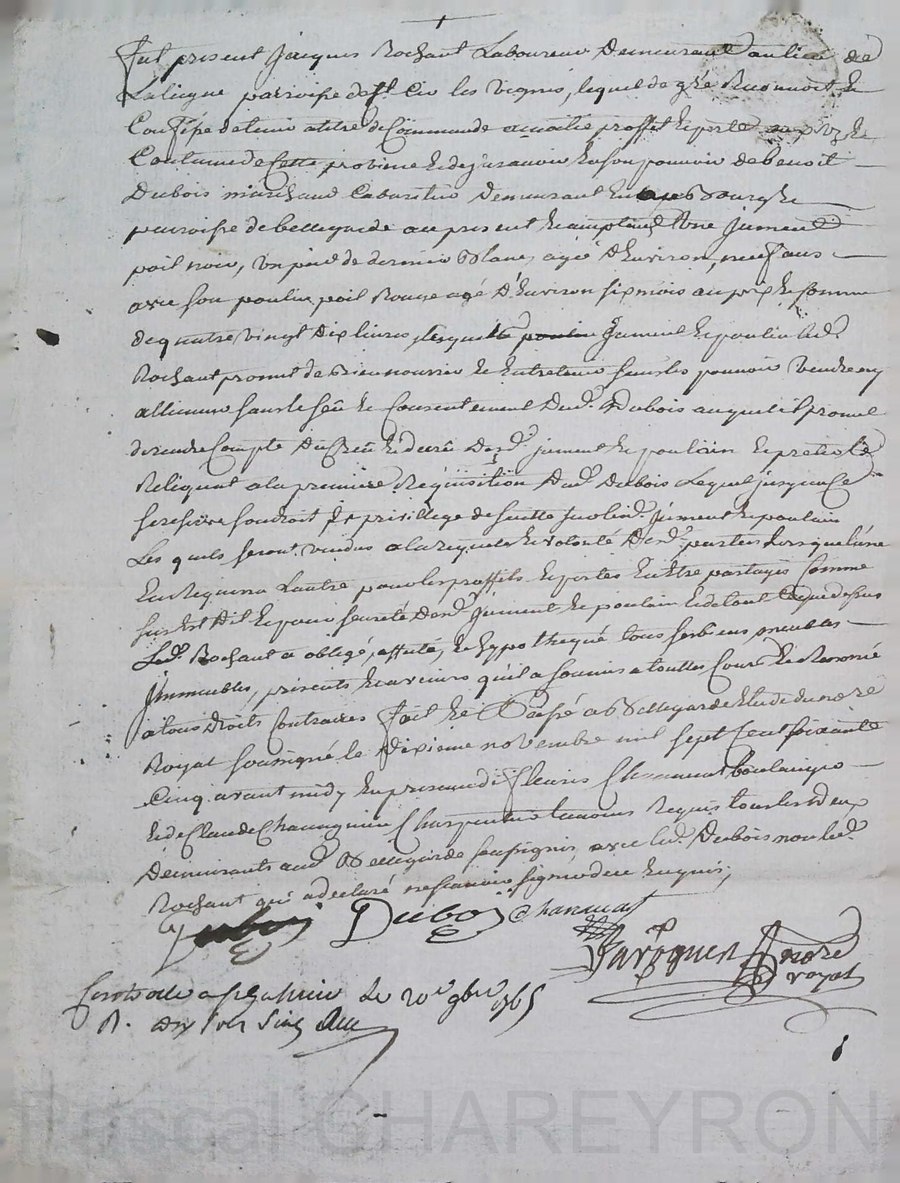 Fut présent Jacques Rochant Laboureur Demeurant au lieu de
Laligue parroisse de St. Cir les vignes, lequel de gré Reconnoit Et
Confesse detenir a titre de Commande a moitié proffit Et perte Et
Coutume de Cette province Et de jà avoir En son pouvoir de benoit
Dubois marchand Cabaretier Demeurant Bourg Et
parroisse de bellegarde au present Et acceptant Une jument
poil noir, un pied de derrier Blanc, agée D'Environ neuf ans
avec son poulin poil Rouge agé D'Environ six mois au prix Et somme
de quatre vingt Dix livres, jument Et poulin led.
Rochant promet de Bien nourrir Et Entretenir sans les pouvoir Vendre ny
alliener sans le sçû Et Consentement Dud. Dubois auquel il promet
de rendre Compte Du Crû Et decrû Desd. jument Et poulain Et preter le
Reliquat a la premiere Requisition Dud. Dubois Lequel jusqu'a Ce
se reserve privillege de suitte sur lesd. jument Et poulain
Les quels seront vendus a la requete Et volonté Desd. parties Lorsque l'une
En Requerra Lautre pour les proffits Et pertes En Etre partagés Comme
sus Est Dit Et pour sureté Desd. jument Et poulain Et de tout Ce que dessus
Led. Rochant a obligé, affecté, Et hypothequé tous ses biens meubles
Immeubles, présents Et avenirs qu'il a soumis a touttes Cours Et Renoncé
a tous Droits Contraires fait Et Passé a Bellegarde Etude du nore
Royal soussigné le Dixieme novembre mil sept Cent soixante
Cinq avant midy En presence de fleuris Chaumat boulanger
Et de Claude Charpentier temoins Requis tous les deux
Demeurants aud. Bellegarde soussignés avec led. Dubois non led.
Rochant qui a declaré ne scavoir signer de ce Enquis,
Dubois Dubois Chaumat
nore
royal
Controlle a Le 20e 9bre 1765
R. dix sols
Pascal CHAREYRON